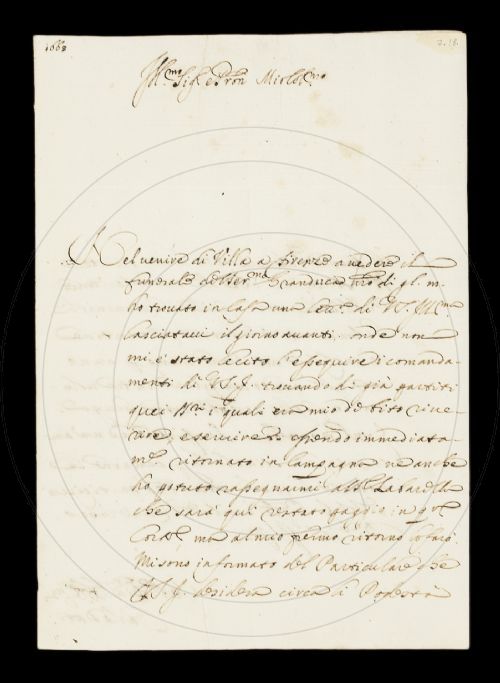 1668
Ill.mo Sig.r e Pron
Nel venire di Villa a Firenze a vedere il
funerale del Ser.mo Granduca di gl. m.
ho trovato in Casa una di V.S. Ill.ma
lasciatavi il giorno avanti, onde non
mi è stato lecito l'esseguire i comanda-
menti di V.S.I. trovando di già partiti
quei i quali era mio debito rive-
rire, e servire et essendo immediata-
m.te ritornato in Campagna ne anche
ho potuto rassegnarmi
che sarà qui
ma al mio primo ritorno lo farò.
Mi sono informato del Particulare che
V.S.I. desidera circa i Podestà